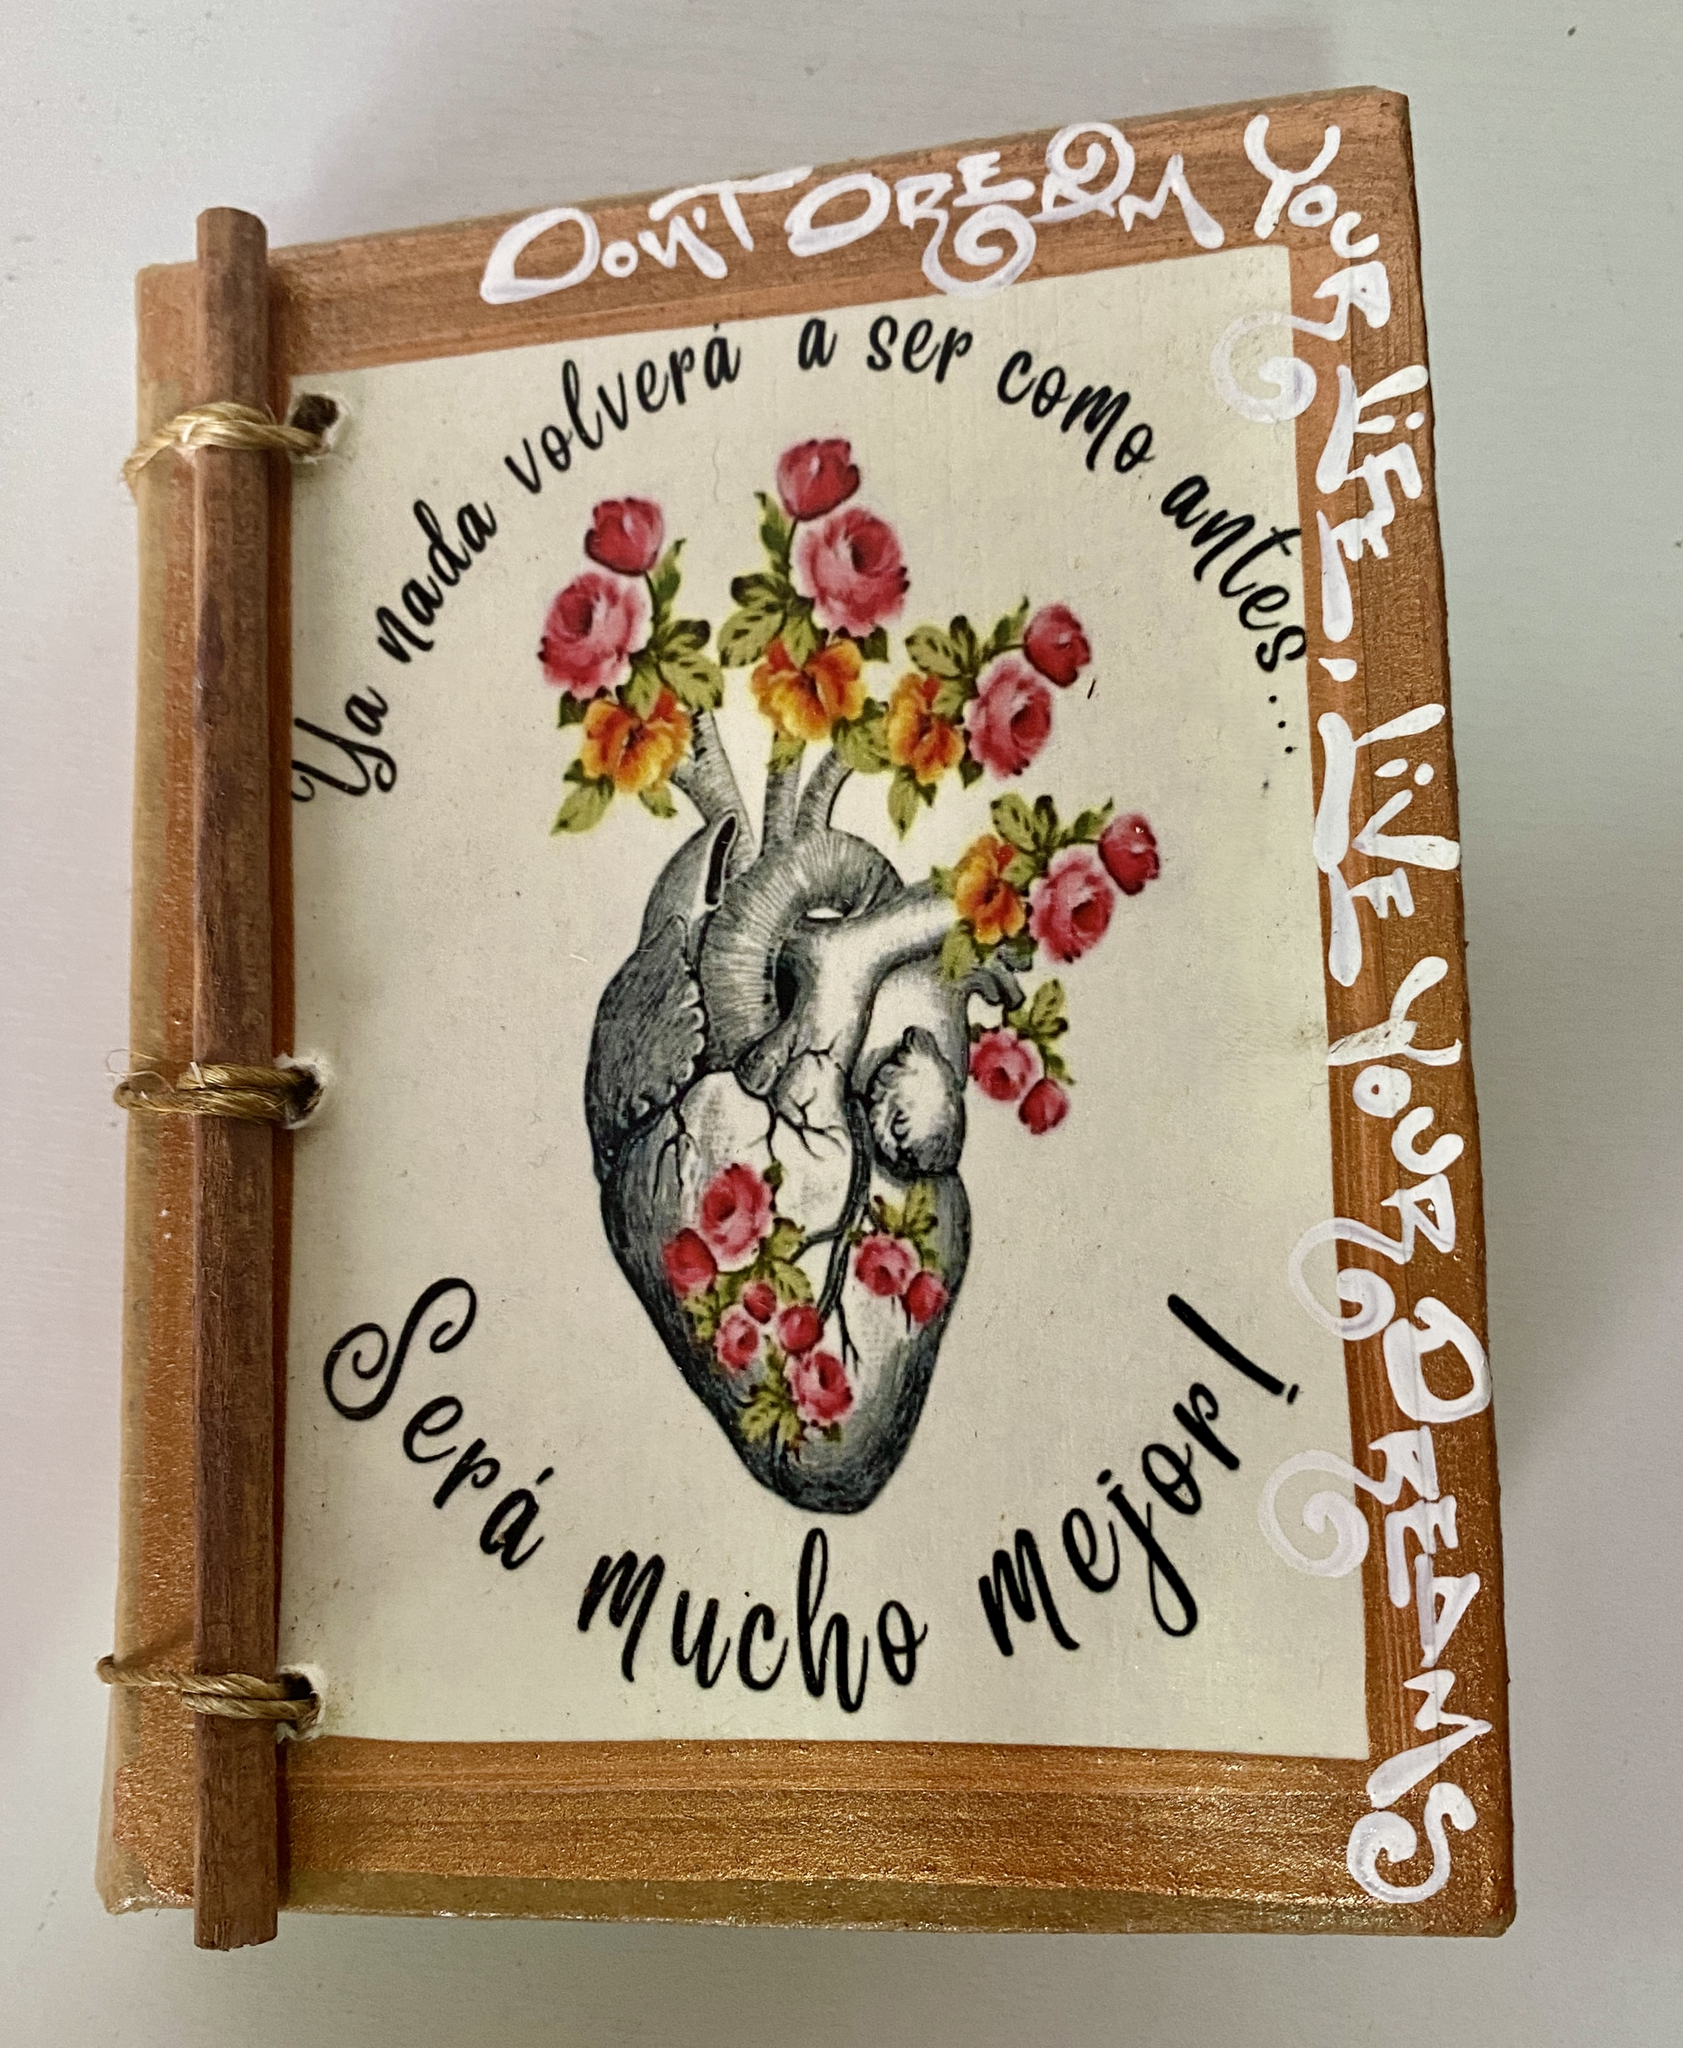 DON'T DREAM
YOUR LIFE, LIVE YOUR DREAMS
Ya nada volverá a ser como antes...
Será mucho mejor!